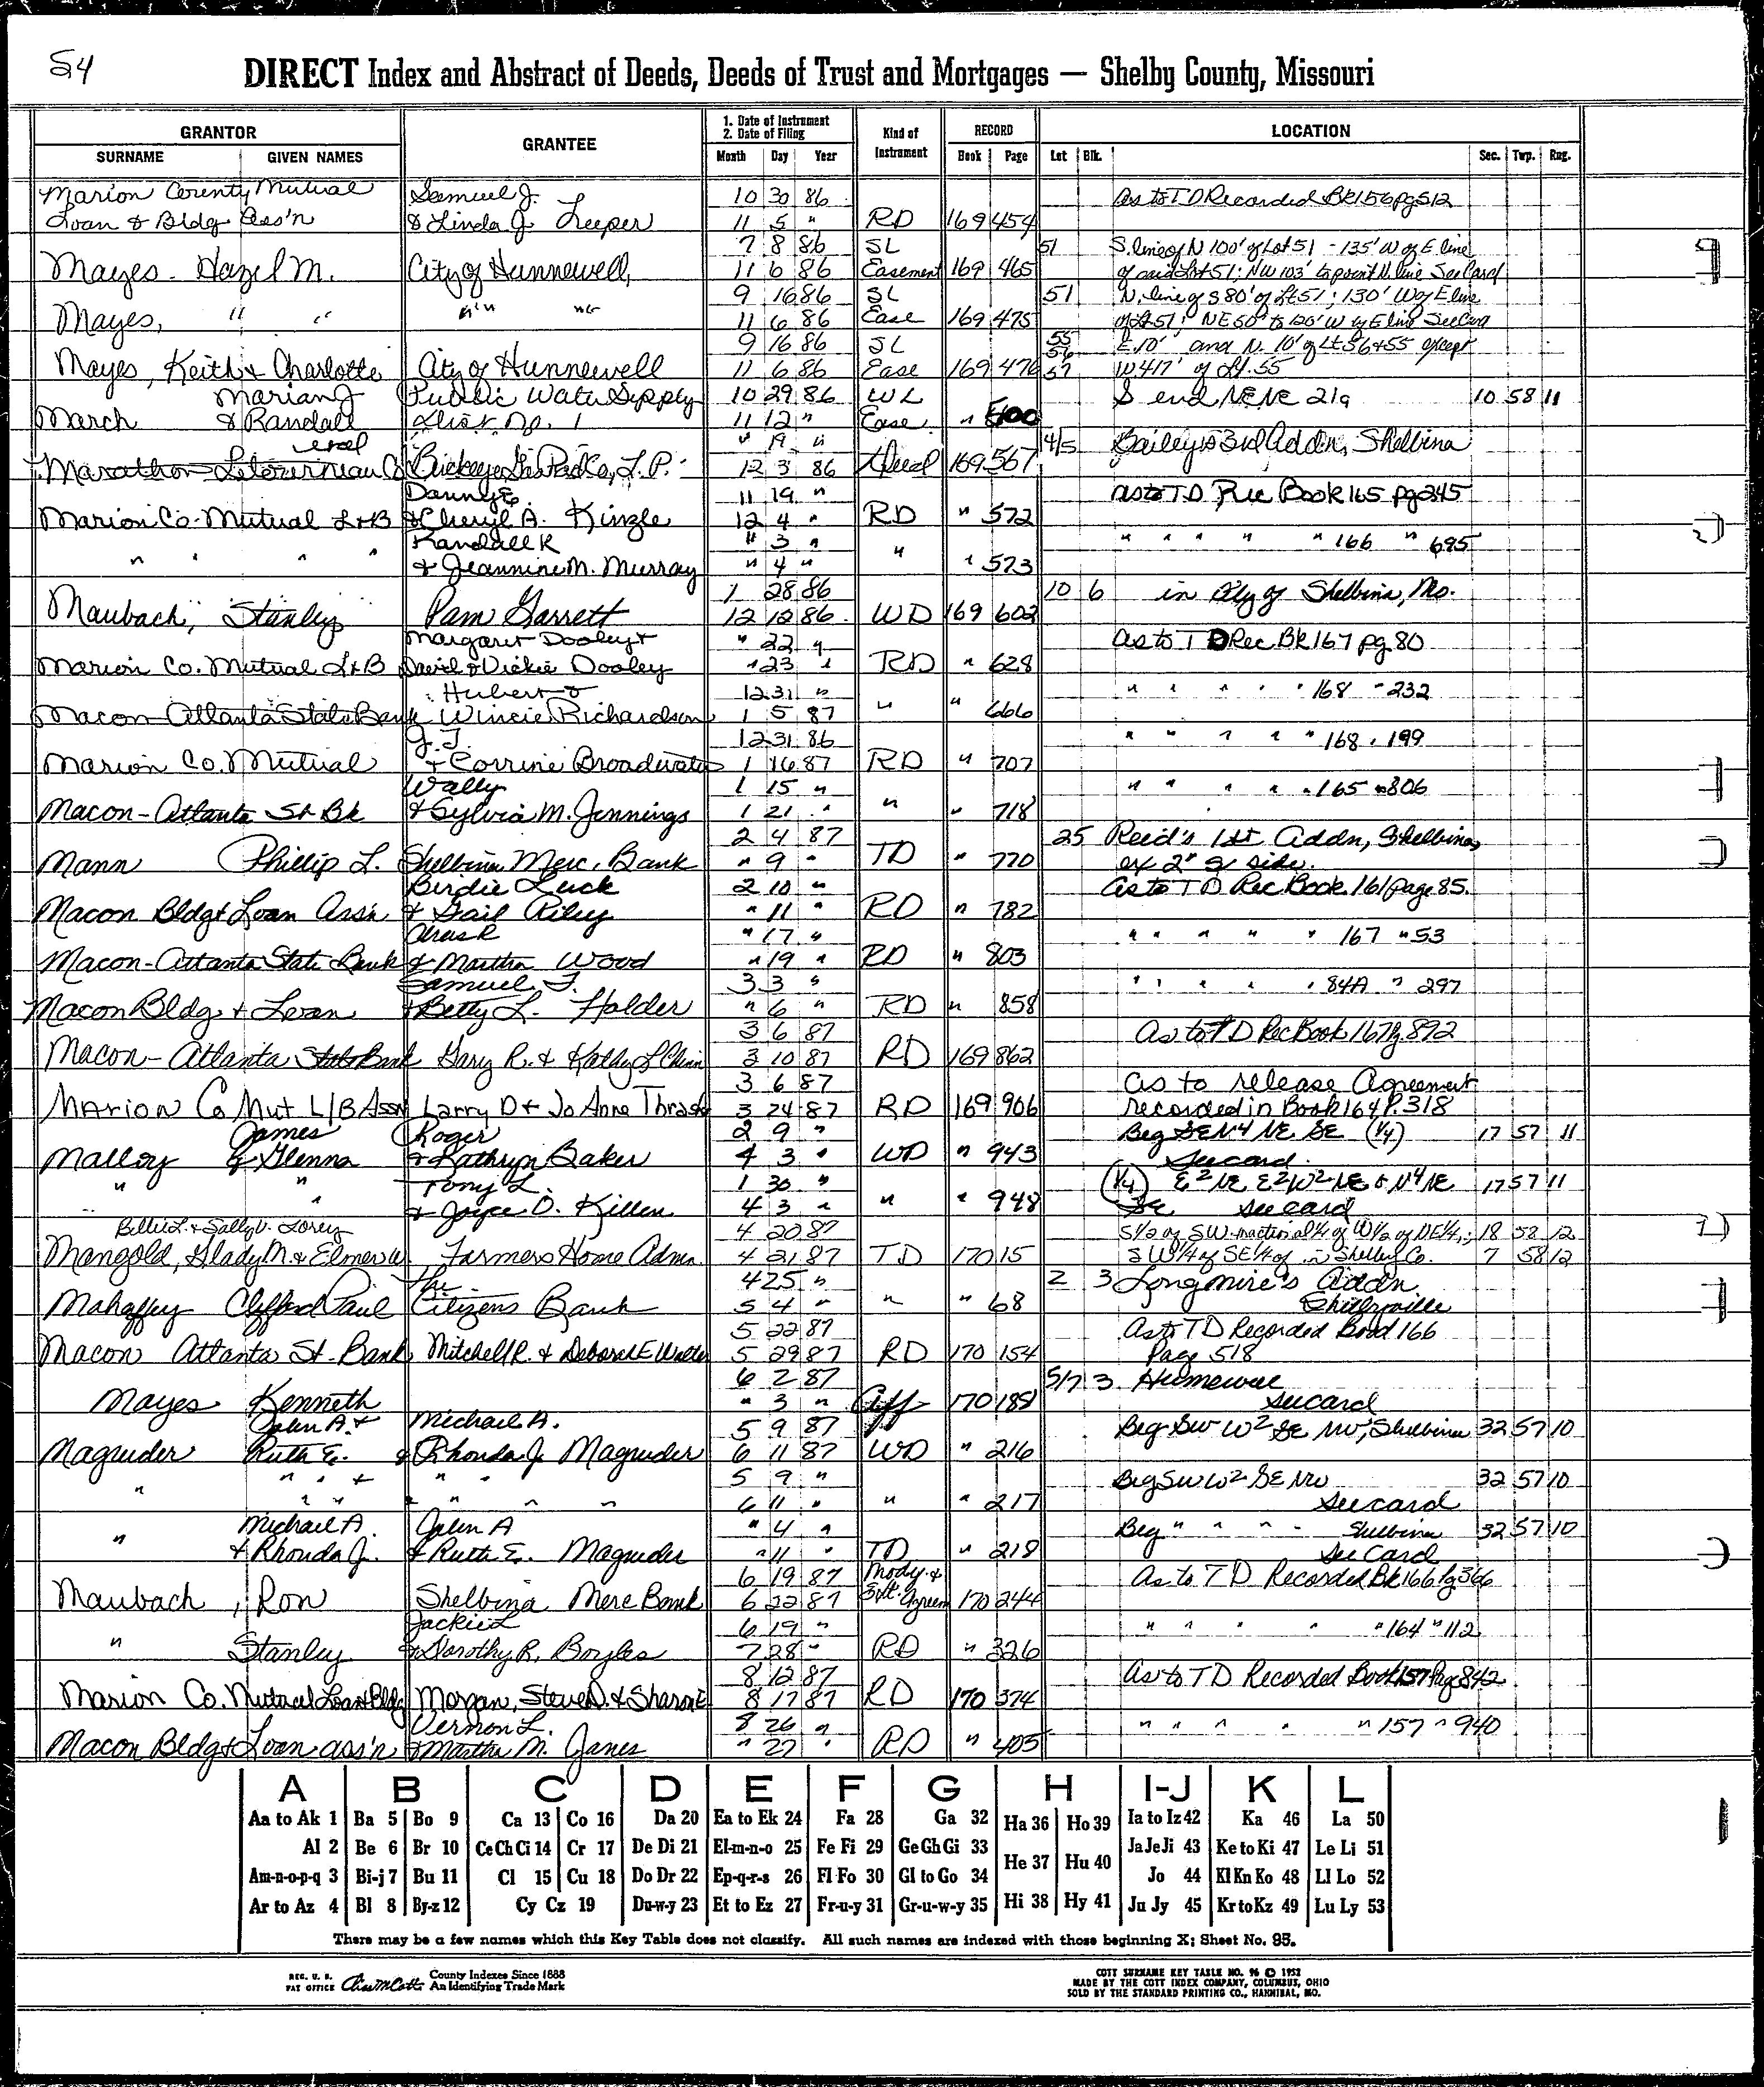 54
DIRECT Index and Abstract of Deeds, Deeds of Trust and Mortgages — Shelby County, Missouri
GRANTOR GRANTEE 1. Date of Instrument 2. Date of Filing Kind of Instrument RECORD LOCATION
SURNAME GIVEN NAMES Month Day Year Book Page Lot Blk. Sec. Twp. Rng.
Marion County Mutual Samuel J. 10 30 86 As to TD Recorded Bk 156 pg 512
Loan & Bldg Ass'n & Linda J. Leeper 11 5 " RD 169 454
7 8 86 SL 51 S. line of N 100' of Lot 51 - 135' W of E line
Mayes - Hazel M. City of Hunnewell, 11 6 86 Easement 169 465 of said Lot 51; NW 103' to point N. line See Card
9 16 86 SL 51 N. line of S 80' of Lt 51; 130' W of E line
Mayes, " " " " " 11 6 86 Ease 169 475 of Lt 51; NE 50' to 120' W of E line See Card
9 16 86 SL 55 56 E. 10' and N. 10' of Lt 56 & 55 except
Mayes, Keith & Charlotte City of Hunnewell 11 6 86 Ease 169 476 57 W 417' of Lt. 55
Marian J Public Water Supply 10 29 86 WL S end NE NE 21a 10 58 11
March & Randall Dist. No. 1 11 12 " Ease. " 500
et al " 19 " 4/5 Bailey's 3rd Addn, Shelbina
Marathon Letourneau Co Buckeye Gas Prod Co, L.P. 12 3 86 Deed 169 567
Danny E. 11 19 " as to T.D Rec Book 165 pg 245
Marion Co. Mutual L & B & Cheryl A. Kinzle 12 4 " RD " 572
Randall K " 3 " " " " " " 166 " 695
" " " " & Jeannine M. Murray " 4 " " " 573
1 28 86 10 6 in City of Shelbina, Mo.
Maubach, Stanley Pam Garrett 12 12 86 WD 169 602
Margaret Dooley & " 22 " as to T D Rec Bk 167 pg 80
Marion Co. Mutual L & B David & Vickie Dooley " 23 " RD " 628
Hubert & 12 31 " " " " " " 168 " 232
Macon-Atlanta State Bank Wincie Richardson 1 5 87 " " 666
J.T. 12 31 86 " " " " " 168 " 199
Marion Co. Mutual & Corrine Broadwater 1 16 87 RD " 707
Wally 1 15 " " " " " " 165 " 806
Macon-Atlanta St Bk & Sylvia M. Jennings 1 21 " " " 718
2 4 87 25 Reed's 1st Addn, Shelbina,
Mann Phillip L. Shelbina Merc. Bank " 9 " TD " 770 ex 2' side.
Birdie Luck 2 10 " as to T D Rec Book 161 page 85.
Macon Bldg & Loan Ass'n & Gail Riley " 11 " RD " 782
" 17 " " " " " " 167 " 53
Macon-Atlanta State Bank & Martha Wood " 19 " RD " 803
Samuel F. 3 3 " " " " " " 84A " 297
Macon Bldg & Loan & Betty L. Holder " 6 " RD " 858
3 6 87 As to T D Rec Book 167 Pg. 892
Macon-Atlanta State Bank Gary R. & Kathy L Chinn 3 10 87 RD 169 862
3 6 87 as to release Agreement
Marion Co Mut L/B Assn Larry D & Jo Anne Thrash 3 24 87 RD 169 906 recorded in Book 164 P. 318
James Roger 2 9 " Beg SE N4 NE SE (1/4) 17 57 11
Malloy & Glenna & Kathryn Baker 4 3 " WD " 943 see card.
" " Tony L. 1 30 " (1/4) E2 NE E2 W2 NE & N4 NE 17 57 11
" & Joyce D. Killen 4 3 " " " 948 SE see card
Billie L. & Sally V. Lorey 4 20 87 S 1/2 of SW fractional 1/4 of W 1/2 of NE 1/4; 18 58 12
Mangold, Glady M. & Elmer W Farmers Home Admn. 4 21 87 TD 170 15 SW 1/4 of SE 1/4 of in Shelby Co. 7 58 12
The 4 25 " 2 3 Longmire's Addn
Mahaffey Clifford Paul Citizens Bank 5 4 " " " 68 Shelbyville
5 22 87 As to TD Recorded Book 166
Macon Atlanta St. Bank Mitchell R. & Deborah E Walter 5 29 87 RD 170 154 Page 518
6 2 87 5/7 3 Hunnewell
Mayes Kenneth " 3 " Aff 170 189 see card
John A & Michael A. 5 9 87 Beg SW W2 SE NW, Shelbina 32 57 10
Magruder Ruth E. & Rhonda J. Magruder 6 11 87 WD " 216
" " & " " 5 9 " Beg SW W2 SE NW 32 57 10
" " " & " " " 6 11 " " " 217 see card
Michael A. John A " 4 " Beg " " " " Shelbina 32 57 10
" & Rhonda J. & Ruth E. Magruder " 11 " TD " 218 See Card
6 19 87 Mody & As to T D Recorded Bk 166 Pg 366
Maubach, Ron Shelbina Merc Bank 6 22 87 Ext. Agreem 170 244
Jackie L 6 19 " " " " " " 164 " 112
" Stanley & Dorothy R. Boyles 7 28 " RD " 326
8 12 87 As to TD Recorded Book 157 Page 842
Marion Co. Mutual Loan & Bldg Morgan, Steve D. & Sharon E 8 17 87 RD 170 374
Vernon L. 8 26 " " " " " " 157 " 940
Macon Bldg & Loan ass'n & Martha M. Janes " 27 " RD " 405
A B C D E F G H I-J K L
Aa to Ak 1 Ba 5 Bo 9 Ca 13 Co 16 Da 20 Ea to Ek 24 Fa 28 Ga 32 Ha 36 Ho 39 Ia to Iz 42 Ka 46 La 50
Al 2 Be 6 Br 10 Ce Ch Ci 14 Cr 17 De Di 21 El-m-n-o 25 Fe Fi 29 Ge Gh Gi 33 He 37 Hu 40 Ja Je Ji 43 Ke to Ki 47 Le Li 51
Am-n-o-p-q 3 Bi-j 7 Bu 11 Cl 15 Cu 18 Do Dr 22 Ep-q-r-s 26 Fl Fo 30 Gl to Go 34 Jo 44 Kl Kn Ko 48 Ll Lo 52
Ar to Az 4 Bl 8 By-z 12 Cy Cz 19 Du-w-y 23 Et to Ez 27 Fr-u-y 31 Gr-u-w-y 35 Hi 38 Hy 41 Ju Jy 45 Kr to Kz 49 Lu Ly 53
There may be a few names which this Key Table does not classify. All such names are indexed with those beginning X; Sheet No. 95.
REG. U. S. PAT OFFICE County Indexes Since 1888 An Identifying Trade Mark
COTT SURNAME KEY TABLE NO. 96 © 1952
MADE BY THE COTT INDEX COMPANY, COLUMBUS, OHIO
SOLD BY THE STANDARD PRINTING CO., HANNIBAL, MO.